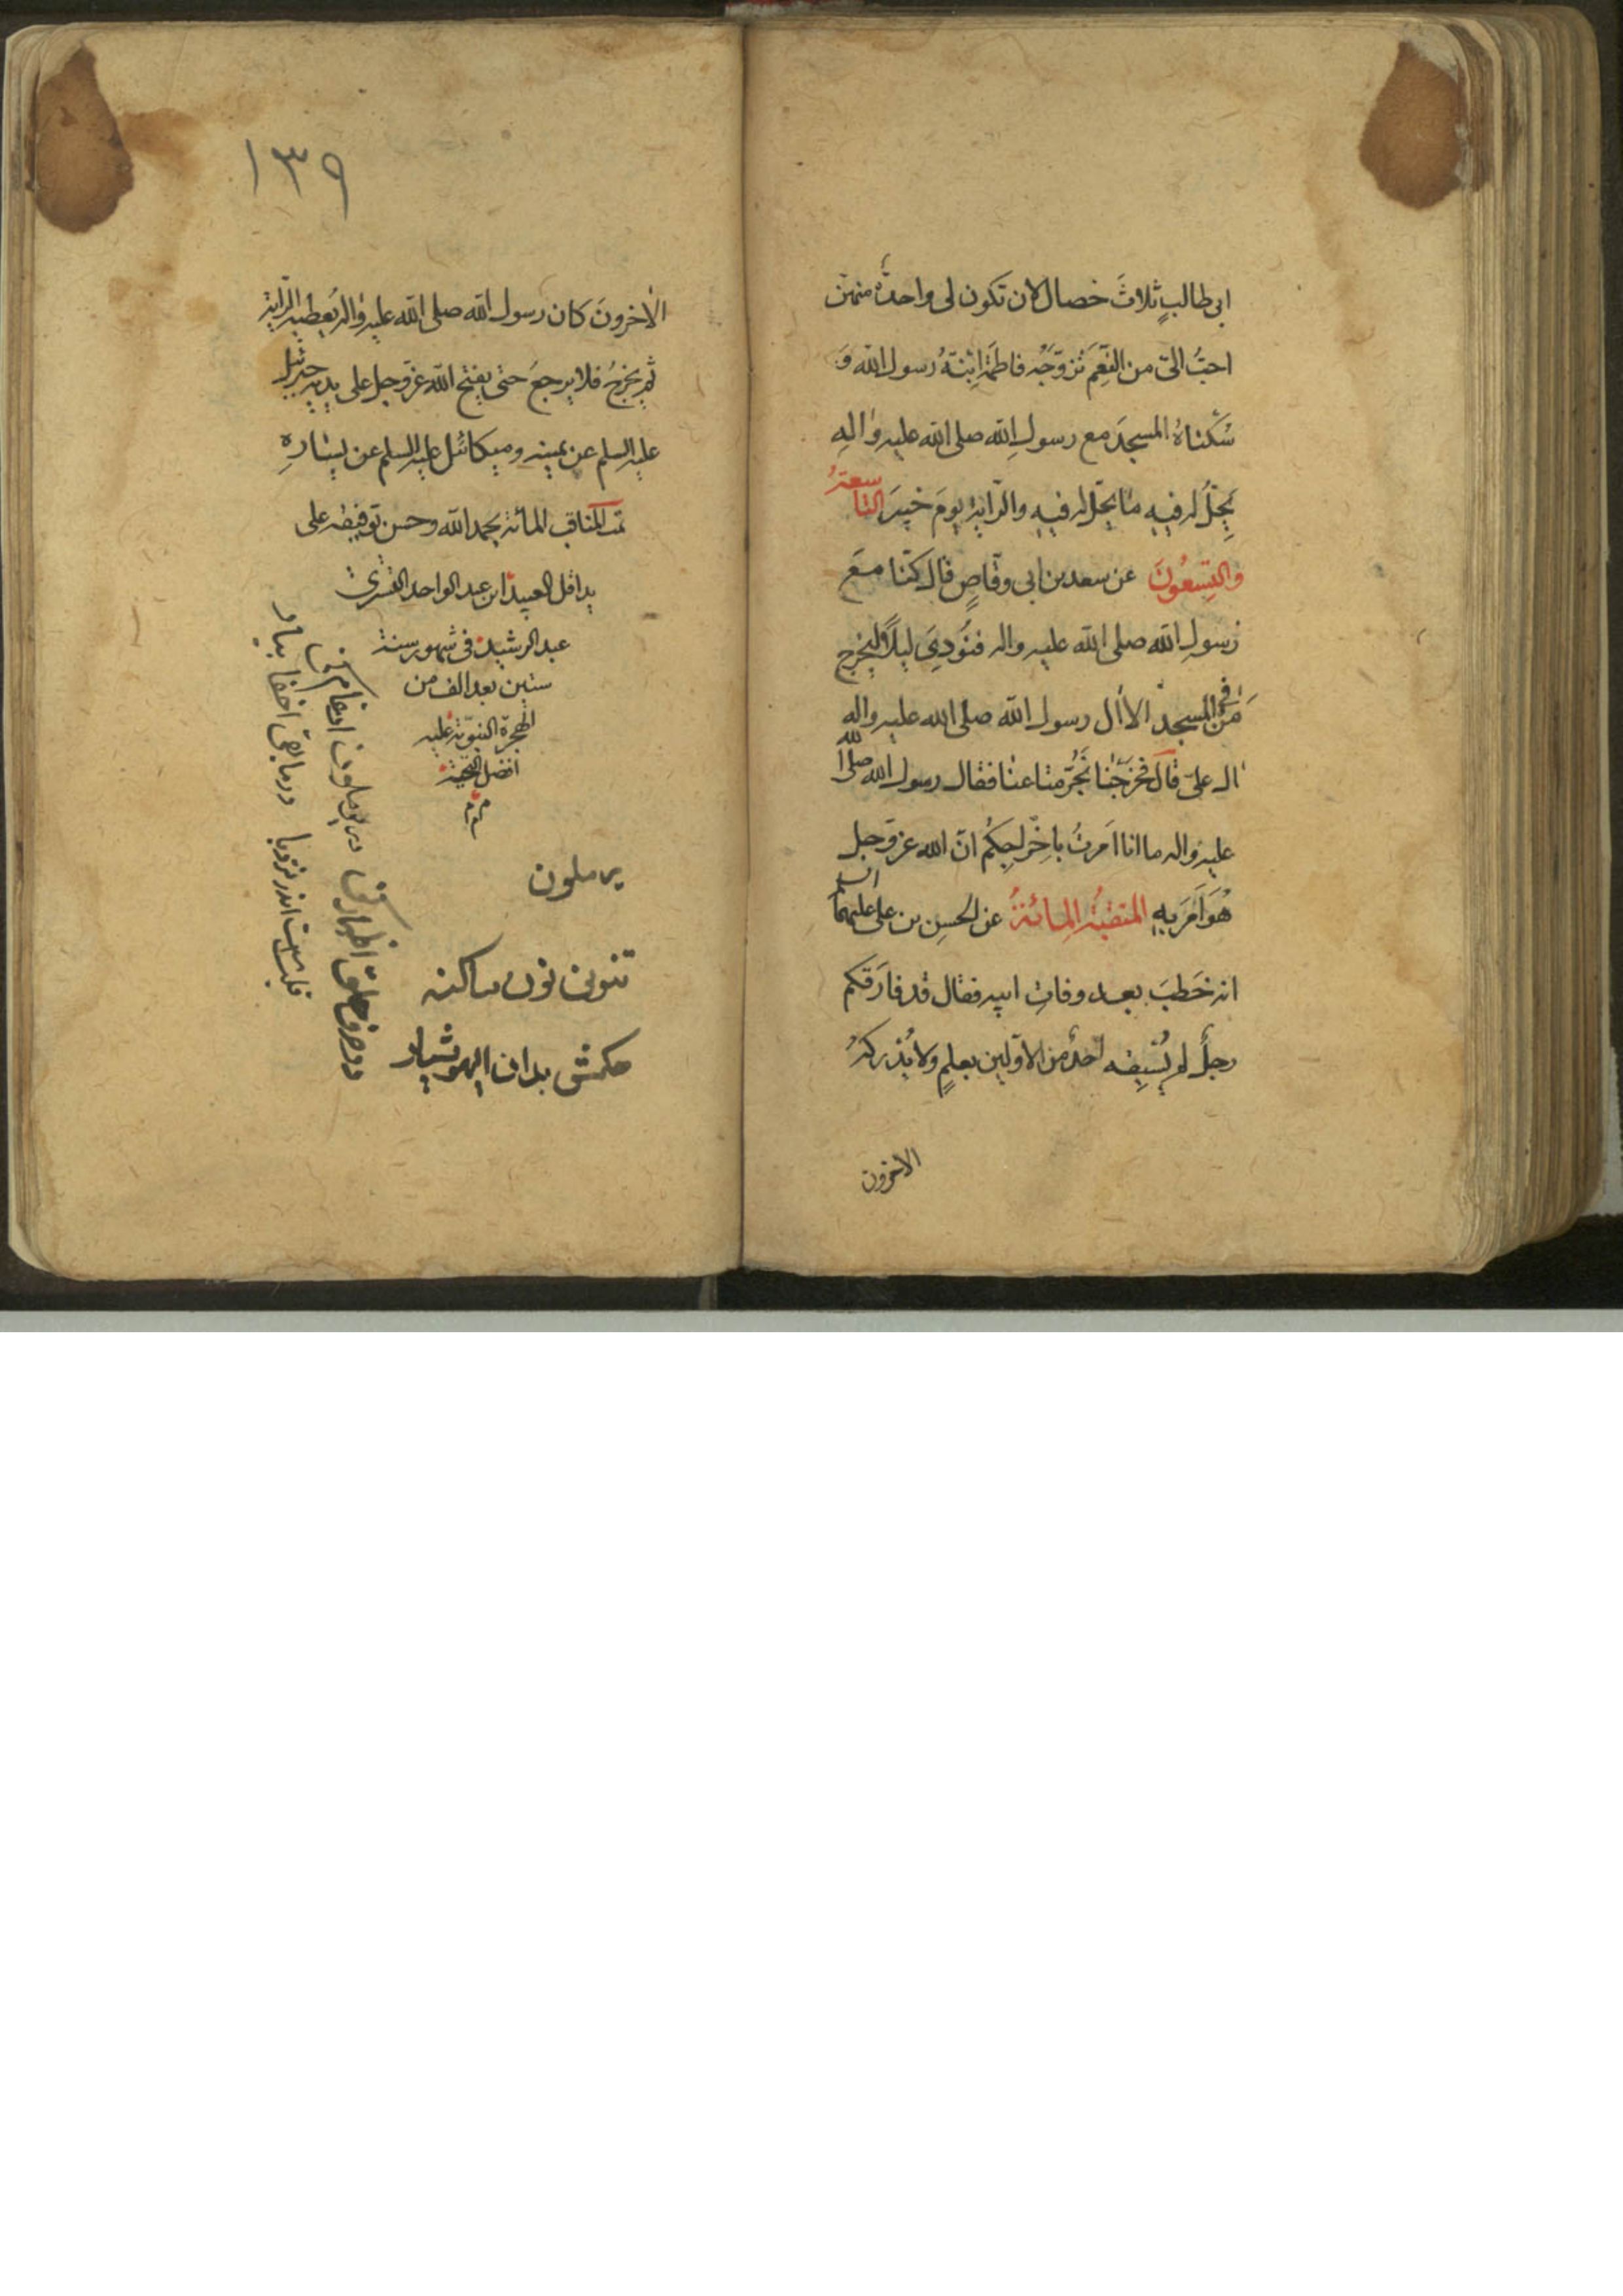 ابی طالبٍ ثلاثَ خصال لان تکون لی واحدةٌ منهنّ
احبُّ الیّ من النِّعَم تَزوّجَهُ فاطمة اِبنَةُ رسول الله وَ
سُکناهُ المسجدَ مع رسولِ الله صلی الله علیه واله
یَحِلُّ له فیهِ ما یحلّ له فیهِ والرّایة یومَ خیبرَ التاسعةُ
والتِسعُونَ عن سعد بن ابی وقّاصٍ قال کنّا معَ
رسولِ الله صلی الله علیه واله فنُودِیَ لیلًا لیخرج
مَن فی المسجد الا ال رسول الله صلی الله علیه واله
ال علیّ قال فخرجنا نَجُرُّ متاعنا فقال رسول الله صلی الله
علیه واله ما انا اَمَرتُ باخراجِکُم انّ الله عز وجل
هُوَ اَمَرَ بهِ المنقبةُ المِائةُ عن الحسن بن علی علیهما السلم
انه خَطَبَ بعد وفاتِ ابیه فقال قد فارَقکم
رجلٌ لم یَسبِقه احدٌ من الاوّلین بعلمٍ ولا یُدرکهُ
الاخرون
۱۳۹
الاخرونَ کان رسول الله صلی الله علیه واله یُعطیه الرّایة
ثم یخرجُ فلا یرجعَ حتی یفتح الله عز وجل علی یدیه جبرئیل
علیه السلم عن یمینه ومیکائیل علیه السلم عن یسارهِ
تمت المناقب المائة بحمد الله وحسن توفیقه علی
ید اقل العبید ابن عبد الواحد
عبد الرشید فی شهور سنة
ستین بعد الف من
الهجرة النبویّة علیه
افضل التحیة
م م م
یرملون
تنوین نون ساکنه
حکمش بدان ایهوشیار
در یرملون ادغام کن
در حرف حلق اظهار کن
درمابقی اخفا بیار